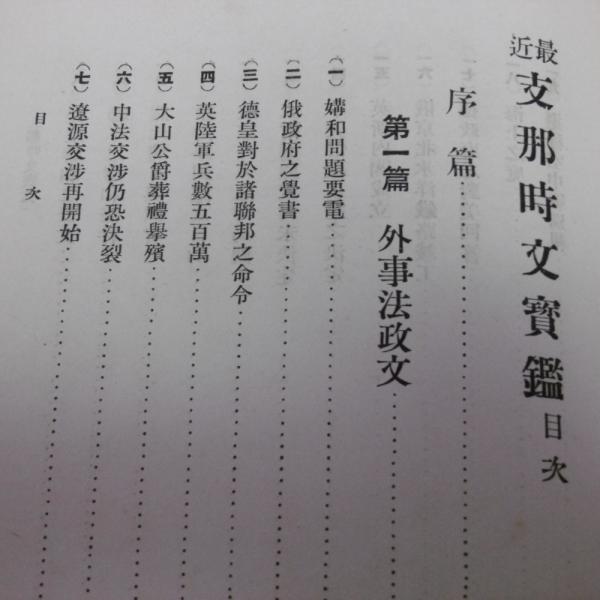 最近支那時文寶鑑目次
序篇
第一篇　外事法政文
(一)　媾和問題要電
(二)　俄政府之覺書
(三)　德皇對於諸聯邦之命令
(四)　英陸軍兵數五百萬
(五)　大山公爵葬禮舉殯
(六)　中法交涉仍恐決裂
(七)　遼源交涉再開始
目次